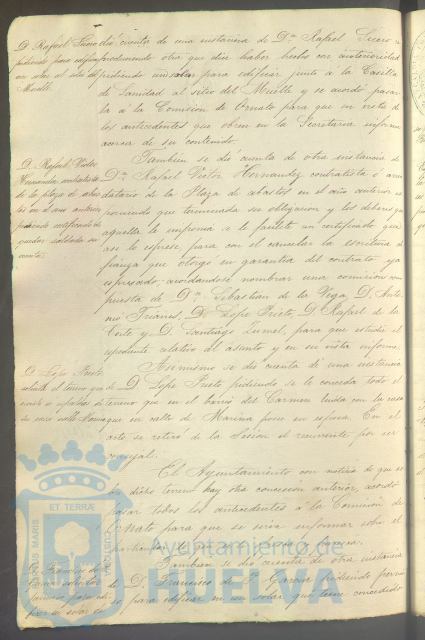 D. Rafael
pidiendo para edificar
en solar el sitio del
Muelle.
dió cuenta de una instancia de Dn Rafael
reproduciendo otra que dice haber hecho con anterioridad
pidiendo un solar para edificar junto á la Casilla
de Sanidad al sitio del Muelle y se acordó pasar
la á la Comisión de Ornato para que en vista de
los antecedentes que obren en la Secretaría informe
acerca de su contenido.
D. Rafael Victor
Hernandez contratista
de la plaza de abas
tos en el año anterior
pidiendo certificado de
quedar solventado su
cuenta.
Tambien se dió cuenta de otra instancia de
Dn Rafael Victor Hernandez contratista ó arren
datario de la Plaza de abastos en el año anterior es
poniendo que terminada su obligacion y los deberes que
aquella le imponia se le facilite un certificado que
así lo esprese para con el cancelar la escritura de
fianza que otorgó en garantia del contrato ya
espresado, acordandose nombrar una comision com
puesta de Dn Sebastian de la Vega, D. Anto
nio Trianes, D. Lope Prieto, D. Rafael de la
Corte y D. Santiago Zumel, para que estudie el
espediente relativo al asunto y en su vista informe.
D. Lope Prieto
solicita el terreno que
Asimismo se dió cuenta de una instancia
de D. Lope Prieto pidiendo se le conceda todo el
terreno que en el barrio del Carmen linda con la casa
que en calle de Marina posee su esposa. En el
acto se retiró de la Sesion el recurrente por ser
concejal.
El Ayuntamiento con noticia de que se
bre dicho terreno hay otra concesion anterior, acordó
pasar todos los antecedentes á la Comision de
Ornato para que se sirva informar sobre el
particular lo que se le ofrezca y parezca.
D. Francisco de P.
Garcia solicita
permiso para edi
ficar el solar
Tambien se dió cuenta de otra instancia
de D. Francisco de P. Garcia pidiendo permi
so para edificar en un solar que tiene concedido
ET TERRÆ
MARIS
CUSTODIA
Ayuntamiento de
HUELVA